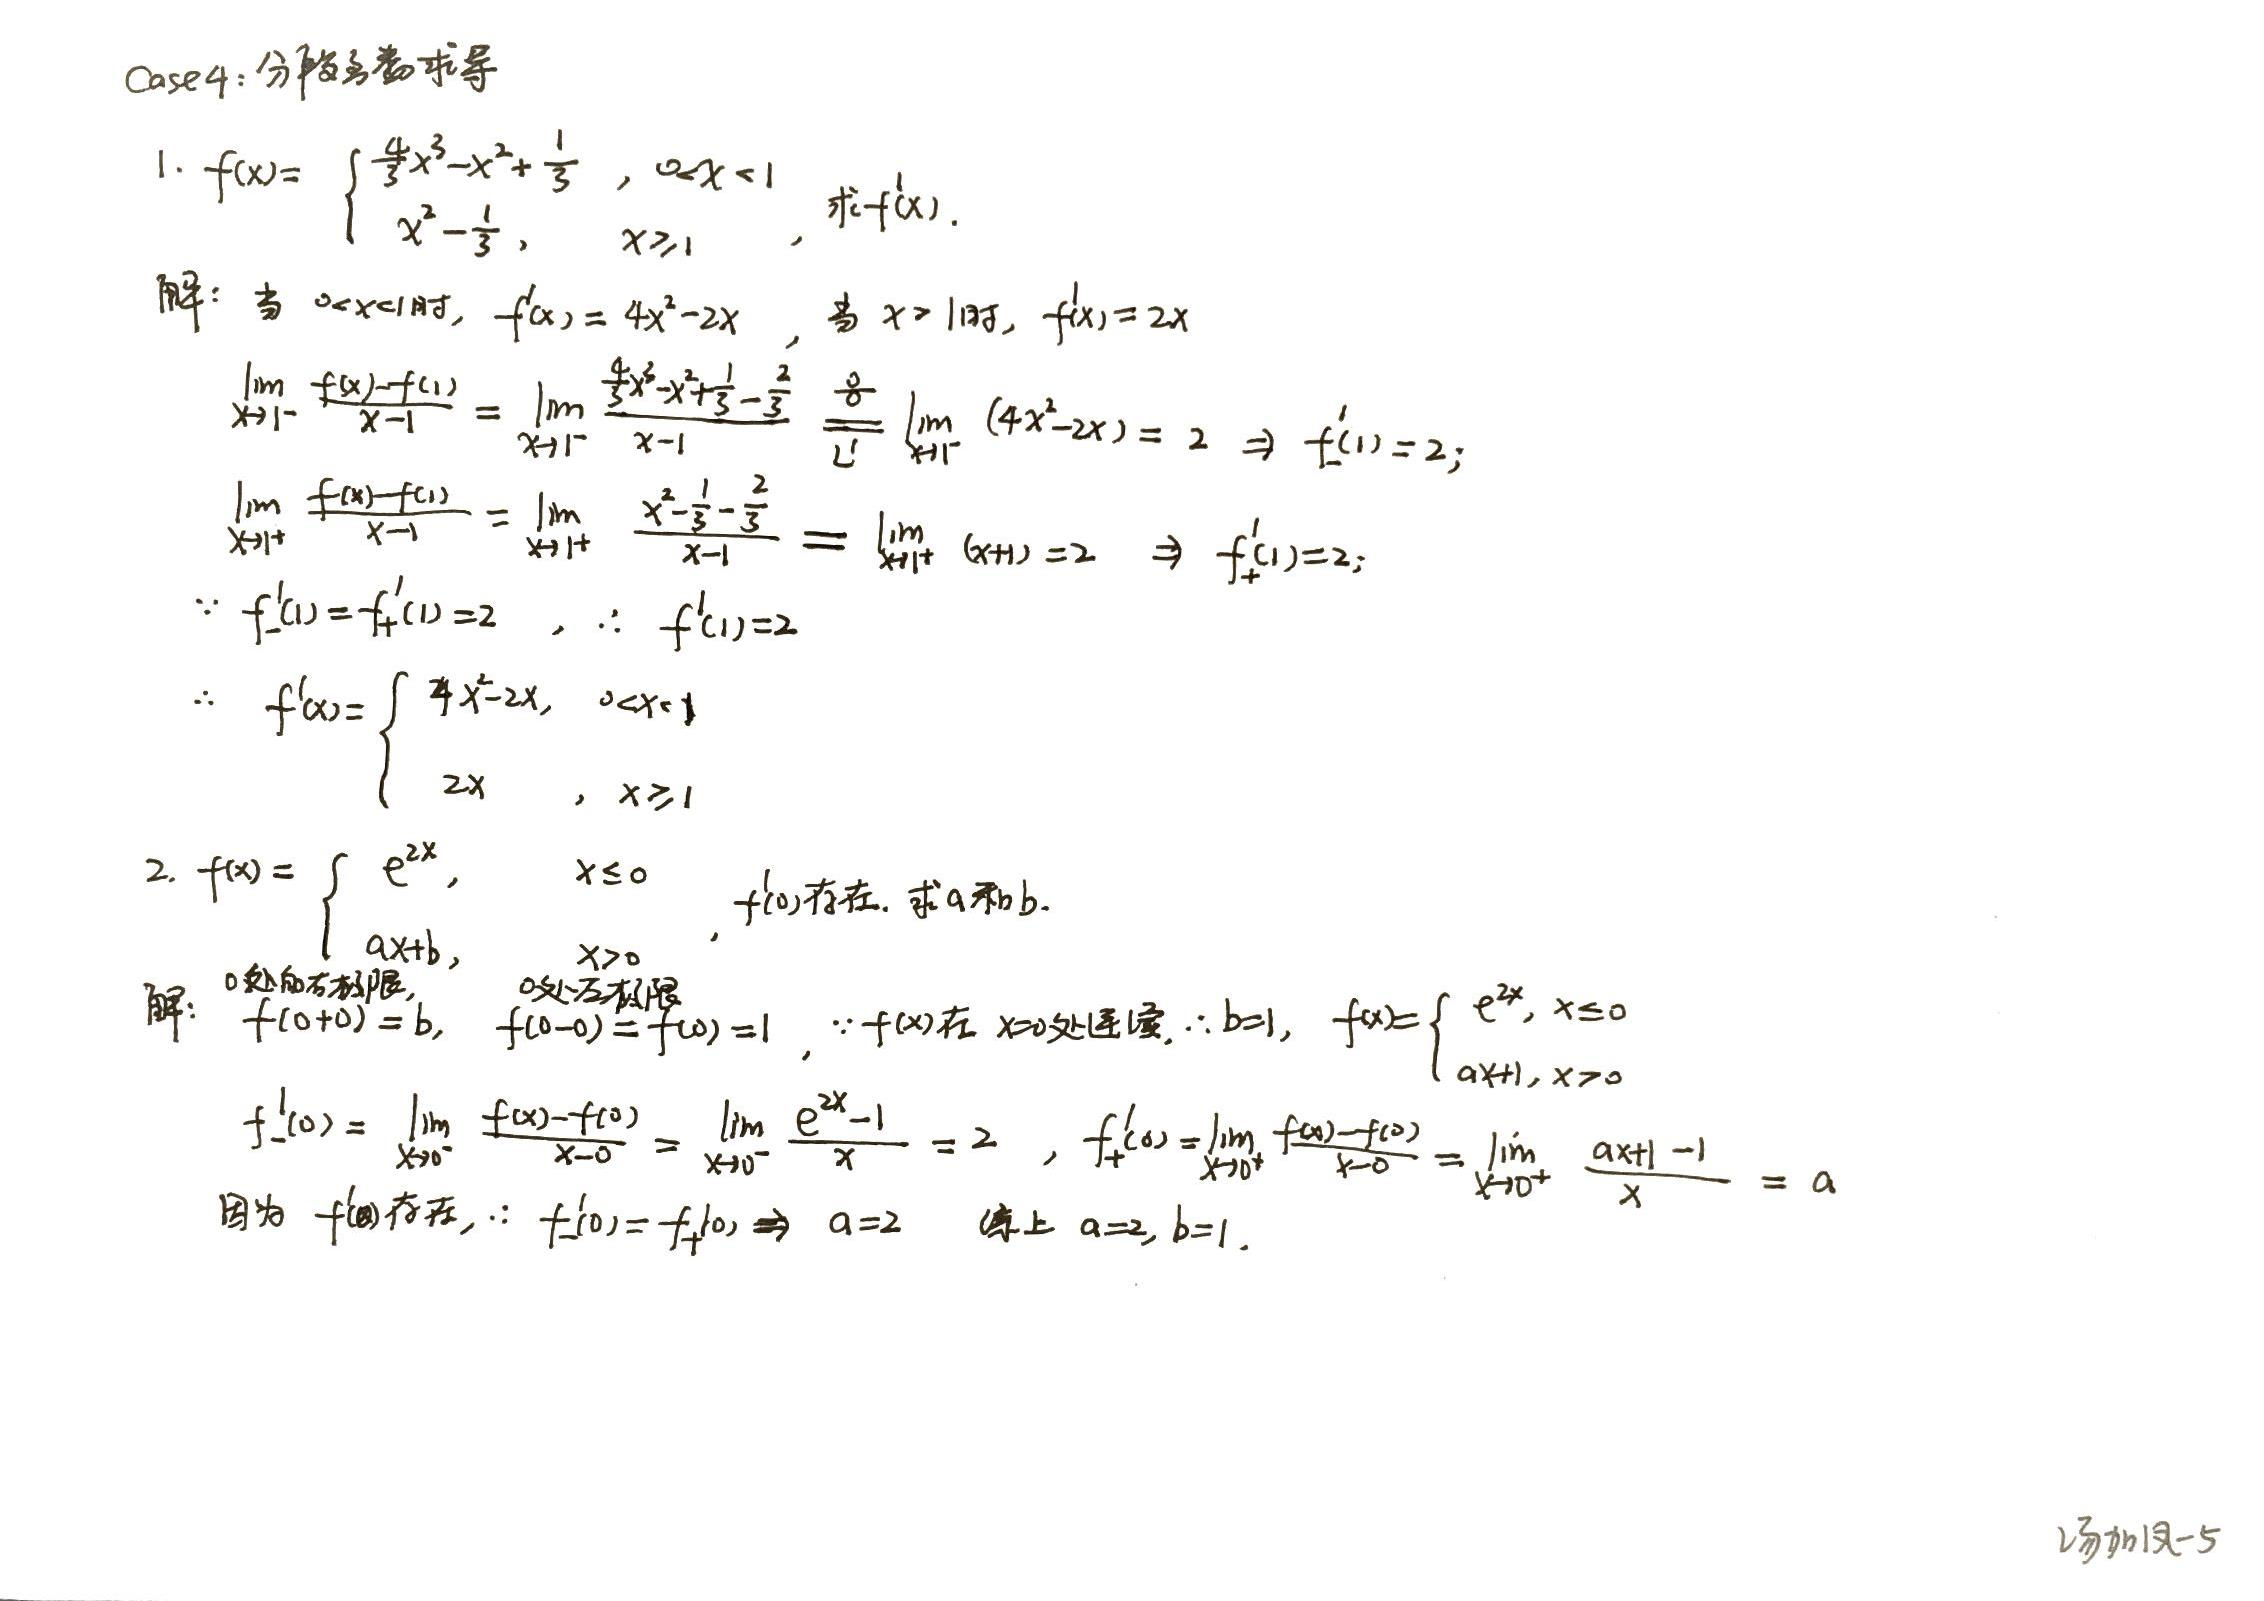 Case4: 分段函数求导
1. f(x)= { 4/3x³-x²+1/3 , 0<x<1
x²-1/3 , x≥1 , 求f'(x).
解: 当 0<x<1时, f'(x)=4x²-2x , 当 x>1时, f'(x)=2x
lim x→1⁻ (f(x)-f(1))/(x-1) = lim x→1⁻ (4/3x³-x²+1/3-2/3)/(x-1) =(0/0, L') lim x→1⁻ (4x²-2x)=2 ⇒ f₋'(1)=2;
lim x→1⁺ (f(x)-f(1))/(x-1) = lim x→1⁺ (x²-1/3-2/3)/(x-1) = lim x→1⁺ (x+1)=2 ⇒ f₊'(1)=2;
∵ f₋'(1)=f₊'(1)=2 , ∴ f'(1)=2
∴ f'(x)= { 4x²-2x, 0<x<1
2x , x≥1
2. f(x)= { e^{2x}, x≤0
ax+b, x>0 , f'(0)存在. 求a和b.
0处的右极限, 0处左极限
解: f(0+0)=b, f(0-0)=f(0)=1 , ∵f(x)在 x=0处连续, ∴b=1, f(x)= { e^{2x}, x≤0
ax+1, x>0
f₋'(0)= lim x→0⁻ (f(x)-f(0))/(x-0) = lim x→0⁻ (e^{2x}-1)/x = 2 , f₊'(0)= lim x→0⁺ (f(x)-f(0))/(x-0) = lim x→0⁺ (ax+1-1)/x = a
因为 f'(0)存在, ∴ f₋'(0)=f₊'(0) ⇒ a=2 综上 a=2, b=1.
汤加凤-5